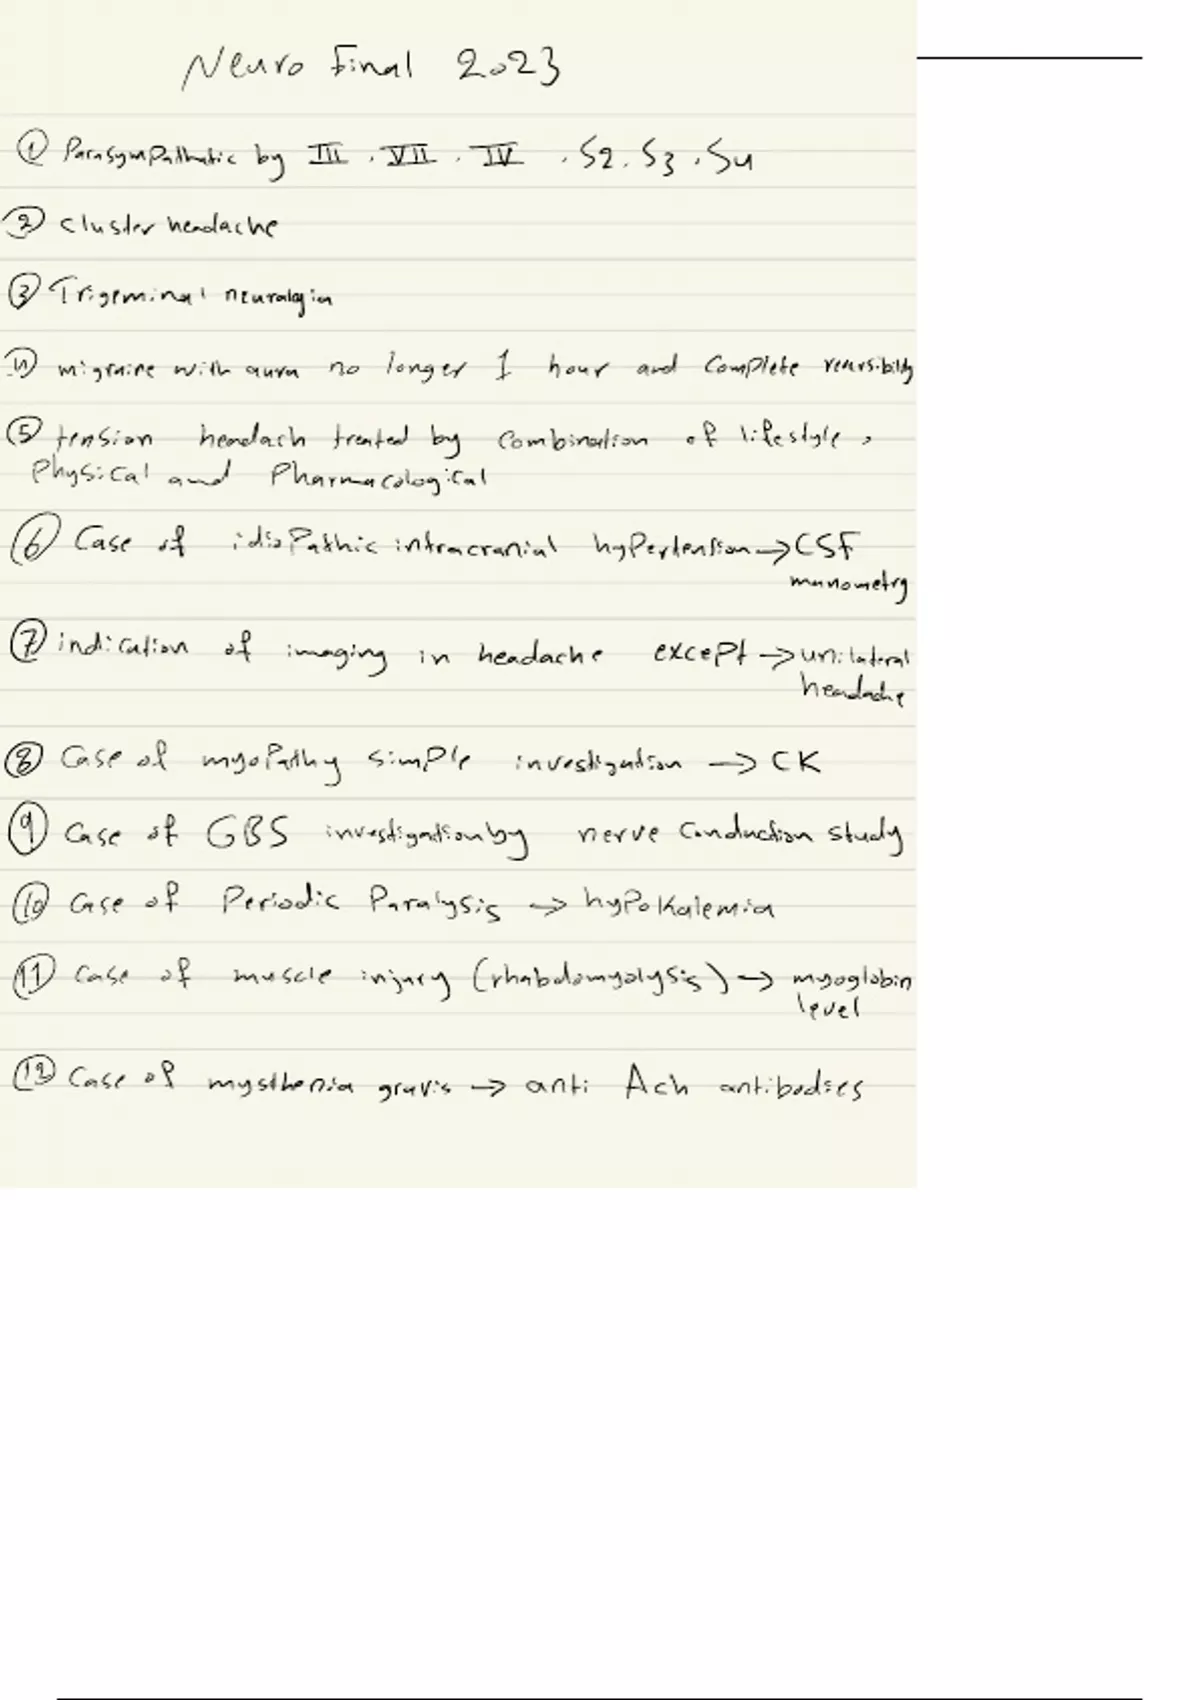 Neuro Final 2023
① Parasympathatic by III . VII . IV . S2 . S3 . S4
② cluster headache
③ Trigeminal neuralgia
④ migraine with aura no longer 1 hour and Complete reversibility
⑤ tension headach treated by Combination of lifestyle ,
Physical and Pharmacological
⑥ Case of idioPathic intracranial hyPertension → CSF
manometry
⑦ indication of imaging in headache excePt → unilateral
headache
⑧ Case of myoPathy simPle investigation → CK
⑨ Case of GBS investigation by nerve Conduction study
⑩ Case of Periodic Paralysis → hyPokalemia
⑪ Case of muscle injury (rhabdomyolysis) → myoglobin
level
⑫ Case of mysthenia gravis → anti Ach antibodies